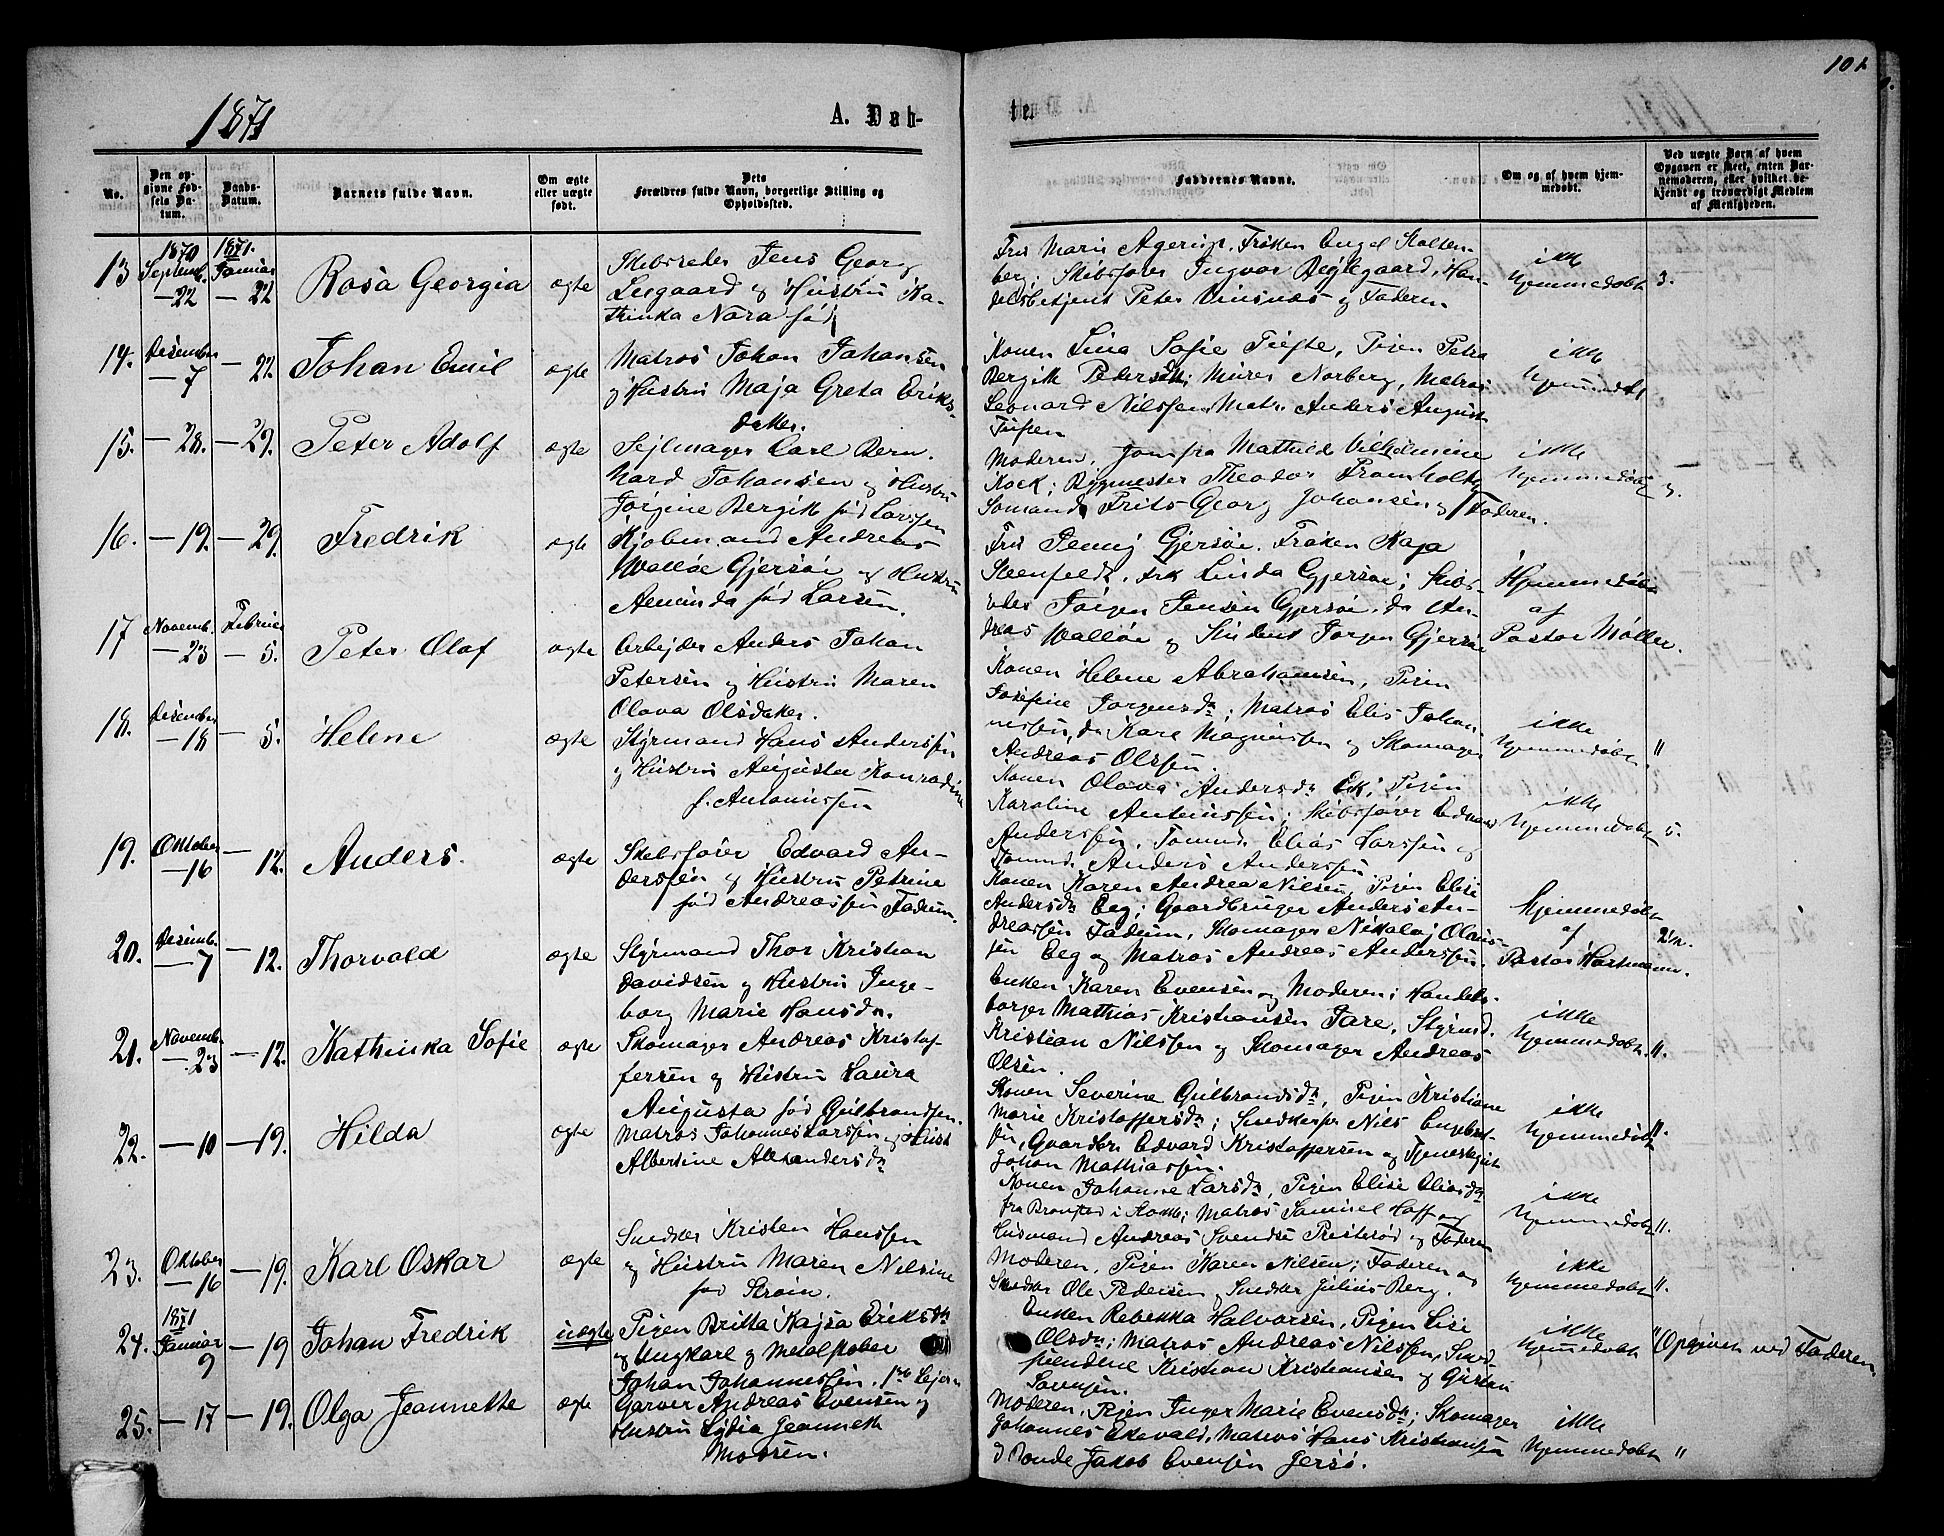 1871
A. Døb-
te.
102
No.
Den op-
givne Fød-
sels Da-
tum.
Daabs-
Datum.
Barnets fulde Navn.
Om ægte
eller uægte
født.
Dets
Forældres fulde Navn, borgerlige Stilling og
Opholdssted.
Faddernes Navne.
Om og af hvem hjem-
medøbt.
Ved uægte Børn af hvem
Opgaven er skeet, enten Bar-
nemoderen, eller hvilket be-
kjendt og troværdigt Medlem
af Menigheden.
13
1870
Septemb.
— 22
1871.
Januar
— 22
Rosa Georgia
ægte
Skibsreder Jens Georg
og Hustru Ka-
thinka Nora fød
Fru Marie Agerup, Frøken Engel Stolten-
berg; Skibsfører Ingvar Bejlegaard, Han-
delsbetjent Peter Vinsnæs og Faderen
ikke
hjemmedøbt
3.
14.
Desember
— 7
— 22.
Johan Emil
ægte
Matros Johan Johansen
og Hustru Maja Greta Eriks-
datter.
Konen Lina Sofie Tufte, Pigen Petra
Bergitte Pedersdtr; Murer Norberg, Matros
Leonard Nilssen, Matr. Anders August
Tuften
ikke
hjemmedøbt
15.
— 28.
— 29.
Peter Adolf
ægte
Sejlmager Carl Bern-
hard Johansen og Hustru
Jørgine Bergitte fød Larssen
Moderen, Jomfru Mathilde Vilhelmine
Kock; Bygmester Theodor Bromholt,
Sømand Frits Georg Johansen og Faderen.
ikke
hjemmedøbt
16.
— 19.
— 29.
Fredrik
ægte
Kjøbmand Andreas
Walløe Gjersøe og Hustru
Aminda fød Larsen.
Fru Jenny Gjersøe, Frøken Kaja
Steenfeldt, frk Linda Gjersøe; Skibs-
reder Jørgen Jensen Gjersøe, do An-
dreas Walløe og Student Jørgen Gjersøe
Hjemmedøbt
af
Pastor Møller.
17
Novemb.
— 23
Februar
— 5.
Peter Olaf
ægte
Arbejder Anders Johan
Petersen og Hustru Maren
Olava Olsdatter.
Konen Helene Abrahamsen, Pigen
Josefine Jørgensdtr; Matros Elis Johan-
nesen, do Karl Magnussen og Skomager
Andreas Olssen.
ikke
hjemmedøbt
"
18.
Desember
— 18
— 5.
Helene
ægte
Styrmand Hans Anderssen
og Hustru Augusta Konradine
f. Antonissen
Konen Olava Andersdtr Ek; Pigen
Karoline Antonissen; Skibsfører Edvard
Anderssen, Tømmd. Elias Larssen og
Tømmd. Anders Anderssen.
ikke
hjemmedøbt
5.
19.
Oktober
— 16
— 12.
Anders.
ægte
Skibsfører Edvard An-
derssen og Hustru Petrine
fød Andreassen Fadum.
Konen Karen Andrea Nilsen, Pigen Elise
Andersdtr Eeg; Gaardbruger Anders An-
dreassen Fadum, Skomager Nikolaj Olaus-
sen Eeg og Matros Andreas Anderssen.
Hjemmedøbt
af
Pastor Hartmann.
20.
Desemb.
— 7
— 12.
Thorvald
ægte
Styrmand Thor Kristian
Davidsen og Hustru Inge-
borg Marie Hansdtr.
Enken Karen Evensen og Moderen; Handels-
borger Mathias Kristiansen Fare, Styrmd.
Kristian Nilssen og Skomager Andreas
Olsen.
ikke
hjemmedøbt.
"
21.
Novemb.
— 23
— 12.
Kathinka Sofie
ægte
Skomager Andreas Kristof-
fersen og Hustru Laura
Augusta fød Gulbrandsen.
Konen Severine Gulbrandsdtr, Pigen Kristiane
Marie Kristoffersdtr; Snedkersv. Nils Engebret-
sen, Gaardbr. Edvard Kristoffersen og Tjenestegut
Johan Mathiassen.
ikke
hjemmedøbt
"
22.
— 10
— 19.
Hilda
ægte
Matros Johannes Larssen og Hust
Albertine Alexandersdtr
Konen Johanne Larsdtr, Pigen Elise Eliasdtr
fra Bronstad i Kodal; Matros Samuel Hoff og
Husmand Andreas Svendsen Prestsrød og Faderen
ikke
hjemmedøbt
"
23.
Oktober
— 16
— 19.
Karl Oskar
ægte
Snedker Kristen Hanssen
og Hustru Maren Nilsine
fød Strøm.
Moderen, Pigen Karen Nilsen; Faderen og
Snedker Ole Pedersen og Snedker Julius Berg.
ikke
hjemmedøbt
"
24.
1871
Januar
9
— 19
Johan Fredrik
uægte
Pigen Britta Kajsa Eriksdtr
og Ungkarl og Metalstøber
Johan Johannessen. 1ste Lejerm
Enken Rebekka Halvorsen, Pigen Lise
Olsdtr; Matros Andreas Nilssen, Sned-
svendene Kristian Kristiansen og Gustav
Sørensen.
ikke
hjemmedøbt
" Opgiven ved Faderen
25.
— 17
— 19.
Olga Jeannette
ægte
Garver Andreas Evensen og
Hustru Lydia Jeannette
Moderen, Pigen Inger Marie Evensdtr; Skomager
Johannes Ekevald, Matros Hans Kristiansen
og Bonde Jakob Evensen Jersø.
ikke
hjemmedøbt
"